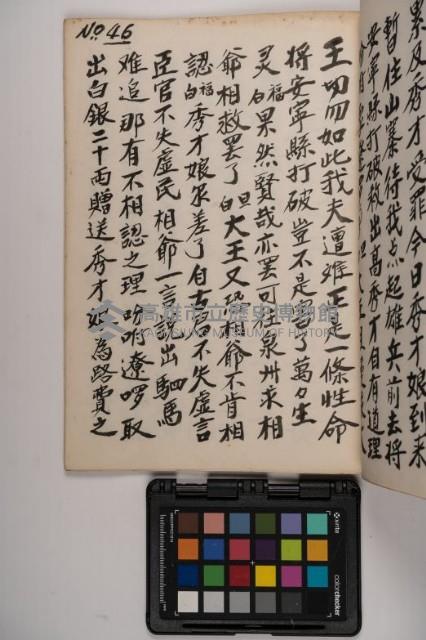 累反秀才受罪今日秀才娘到来
暫住山寨待我点起雄兵前去将
安寧縣打破救出高秀才自有道理
No 46
王 切勿如此我夫遭难王是一條性命
将安寧縣打破豈不是害了萬多生
灵 福白 果然賢哉亦罢可往泉州求相
爺相救罢了 旦白 大王又恐相爺不肯相
認 福白 秀才娘尔差了自古 不失虛言
臣官不失虛民相爺一言說出駟馬
难追那有不相認之理 吩咐遼啰取
出白銀二十両贈送秀才娘為路費之
高雄市立歷史博物館
KAOHSIUNG MUSEUM OF HISTORY
x-rite
colorchecker